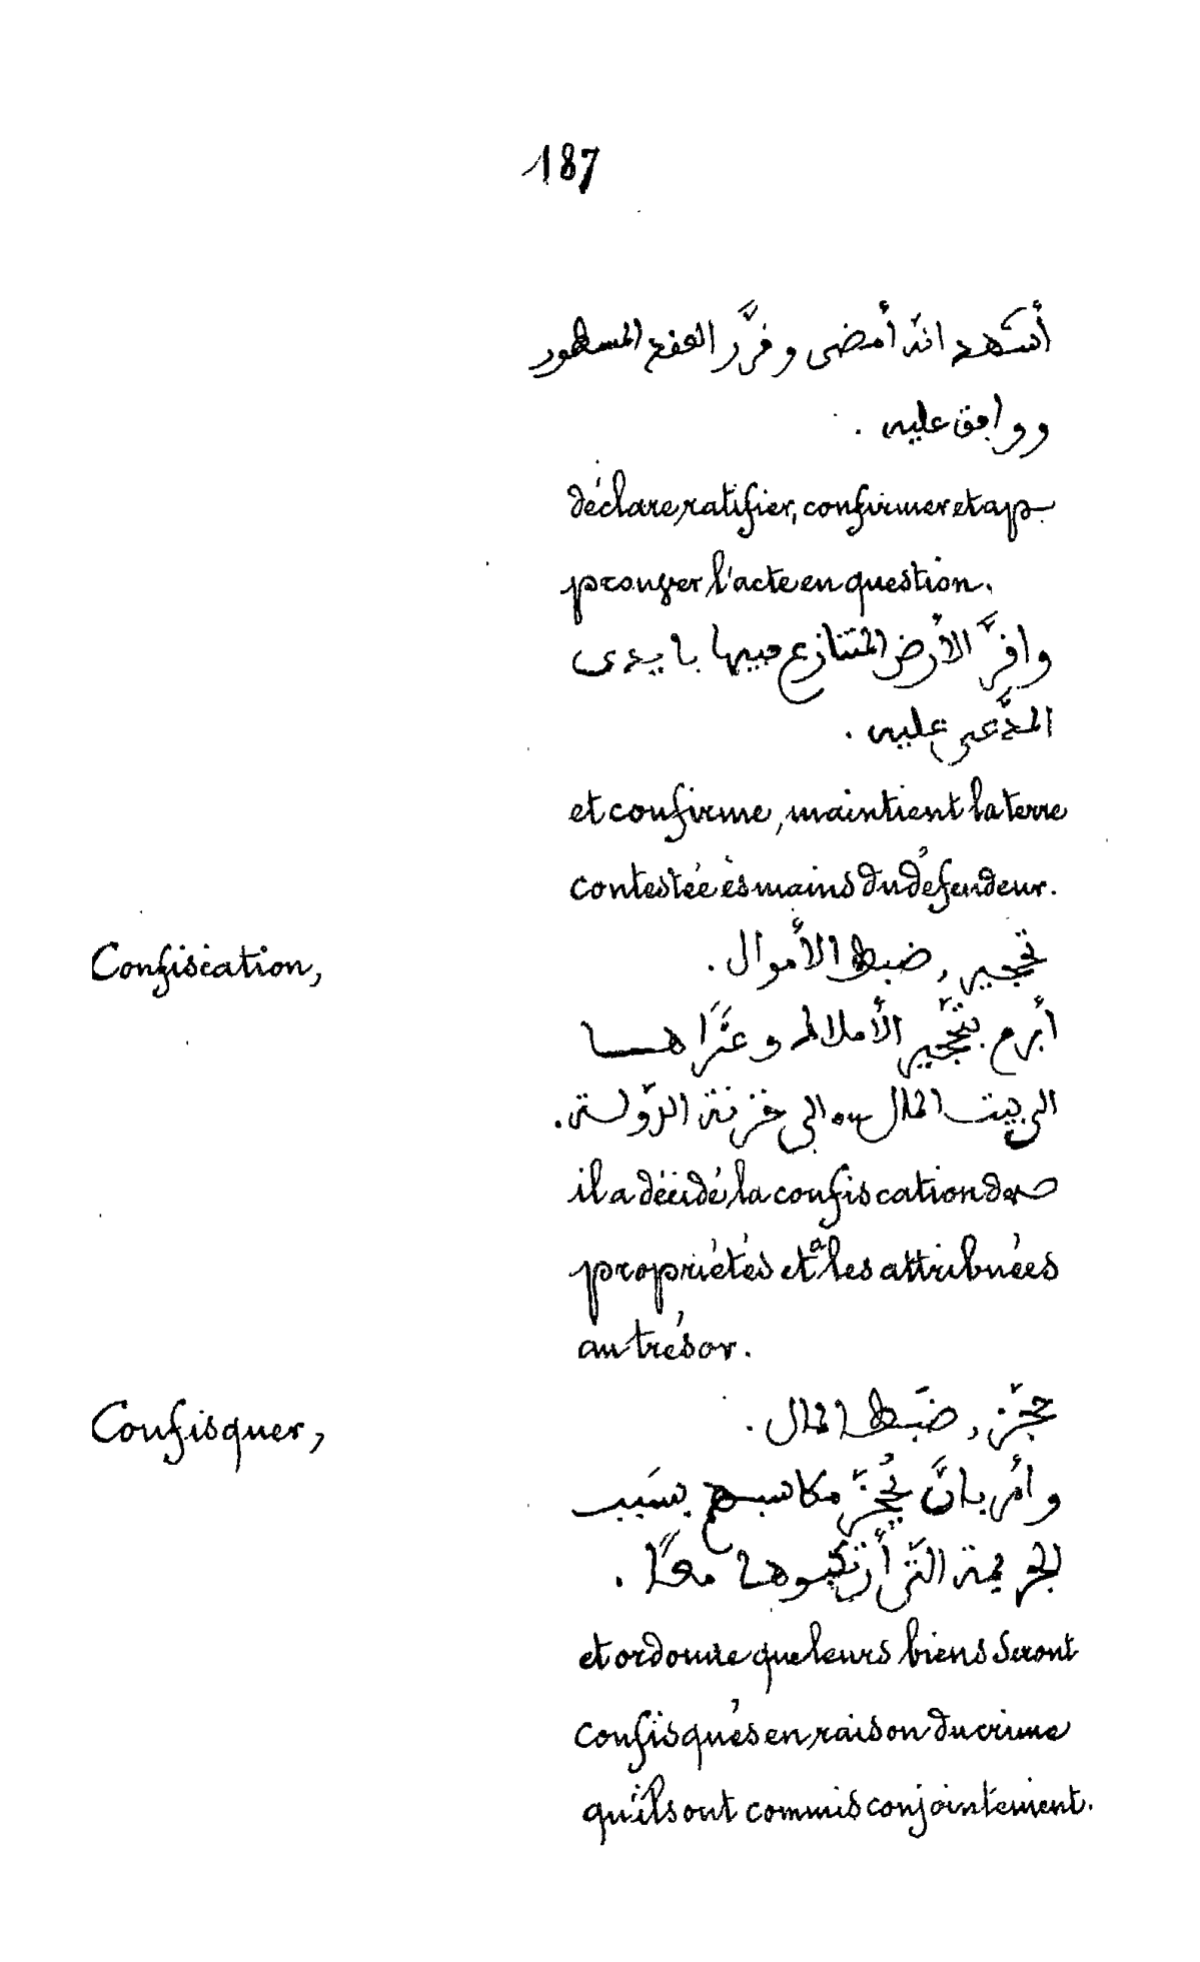 187
أشهد انّه أمضى وقرَّر العقد المسطور
ووافق عليه .
déclare, ratifier, confirmer et ap-
prouver l'acte en question.
واقرَّ الأرض المتنازع فيها بايدى
المدَّعى عليه .
et confirme, maintient la terre
contestée ès mains du défendeur.
Confiscation, تحجير , ضبط الأموال .
أبرم بتحجّير الأملاك وعزَّاها
الى بيت المال = الى خزنة الدّولة .
il a décidé la confiscation des
propriétés et a les attribuées
au trésor.
Confisquer, حجّز , ضبَط المال .
وأمر بانَّ مكاسبهم بسَبب
الجريمة الَّتى أرتكبوها معًا .
et ordonne que leurs biens seront
confisqués en raison du crime
qu'ils ont commis conjointement.